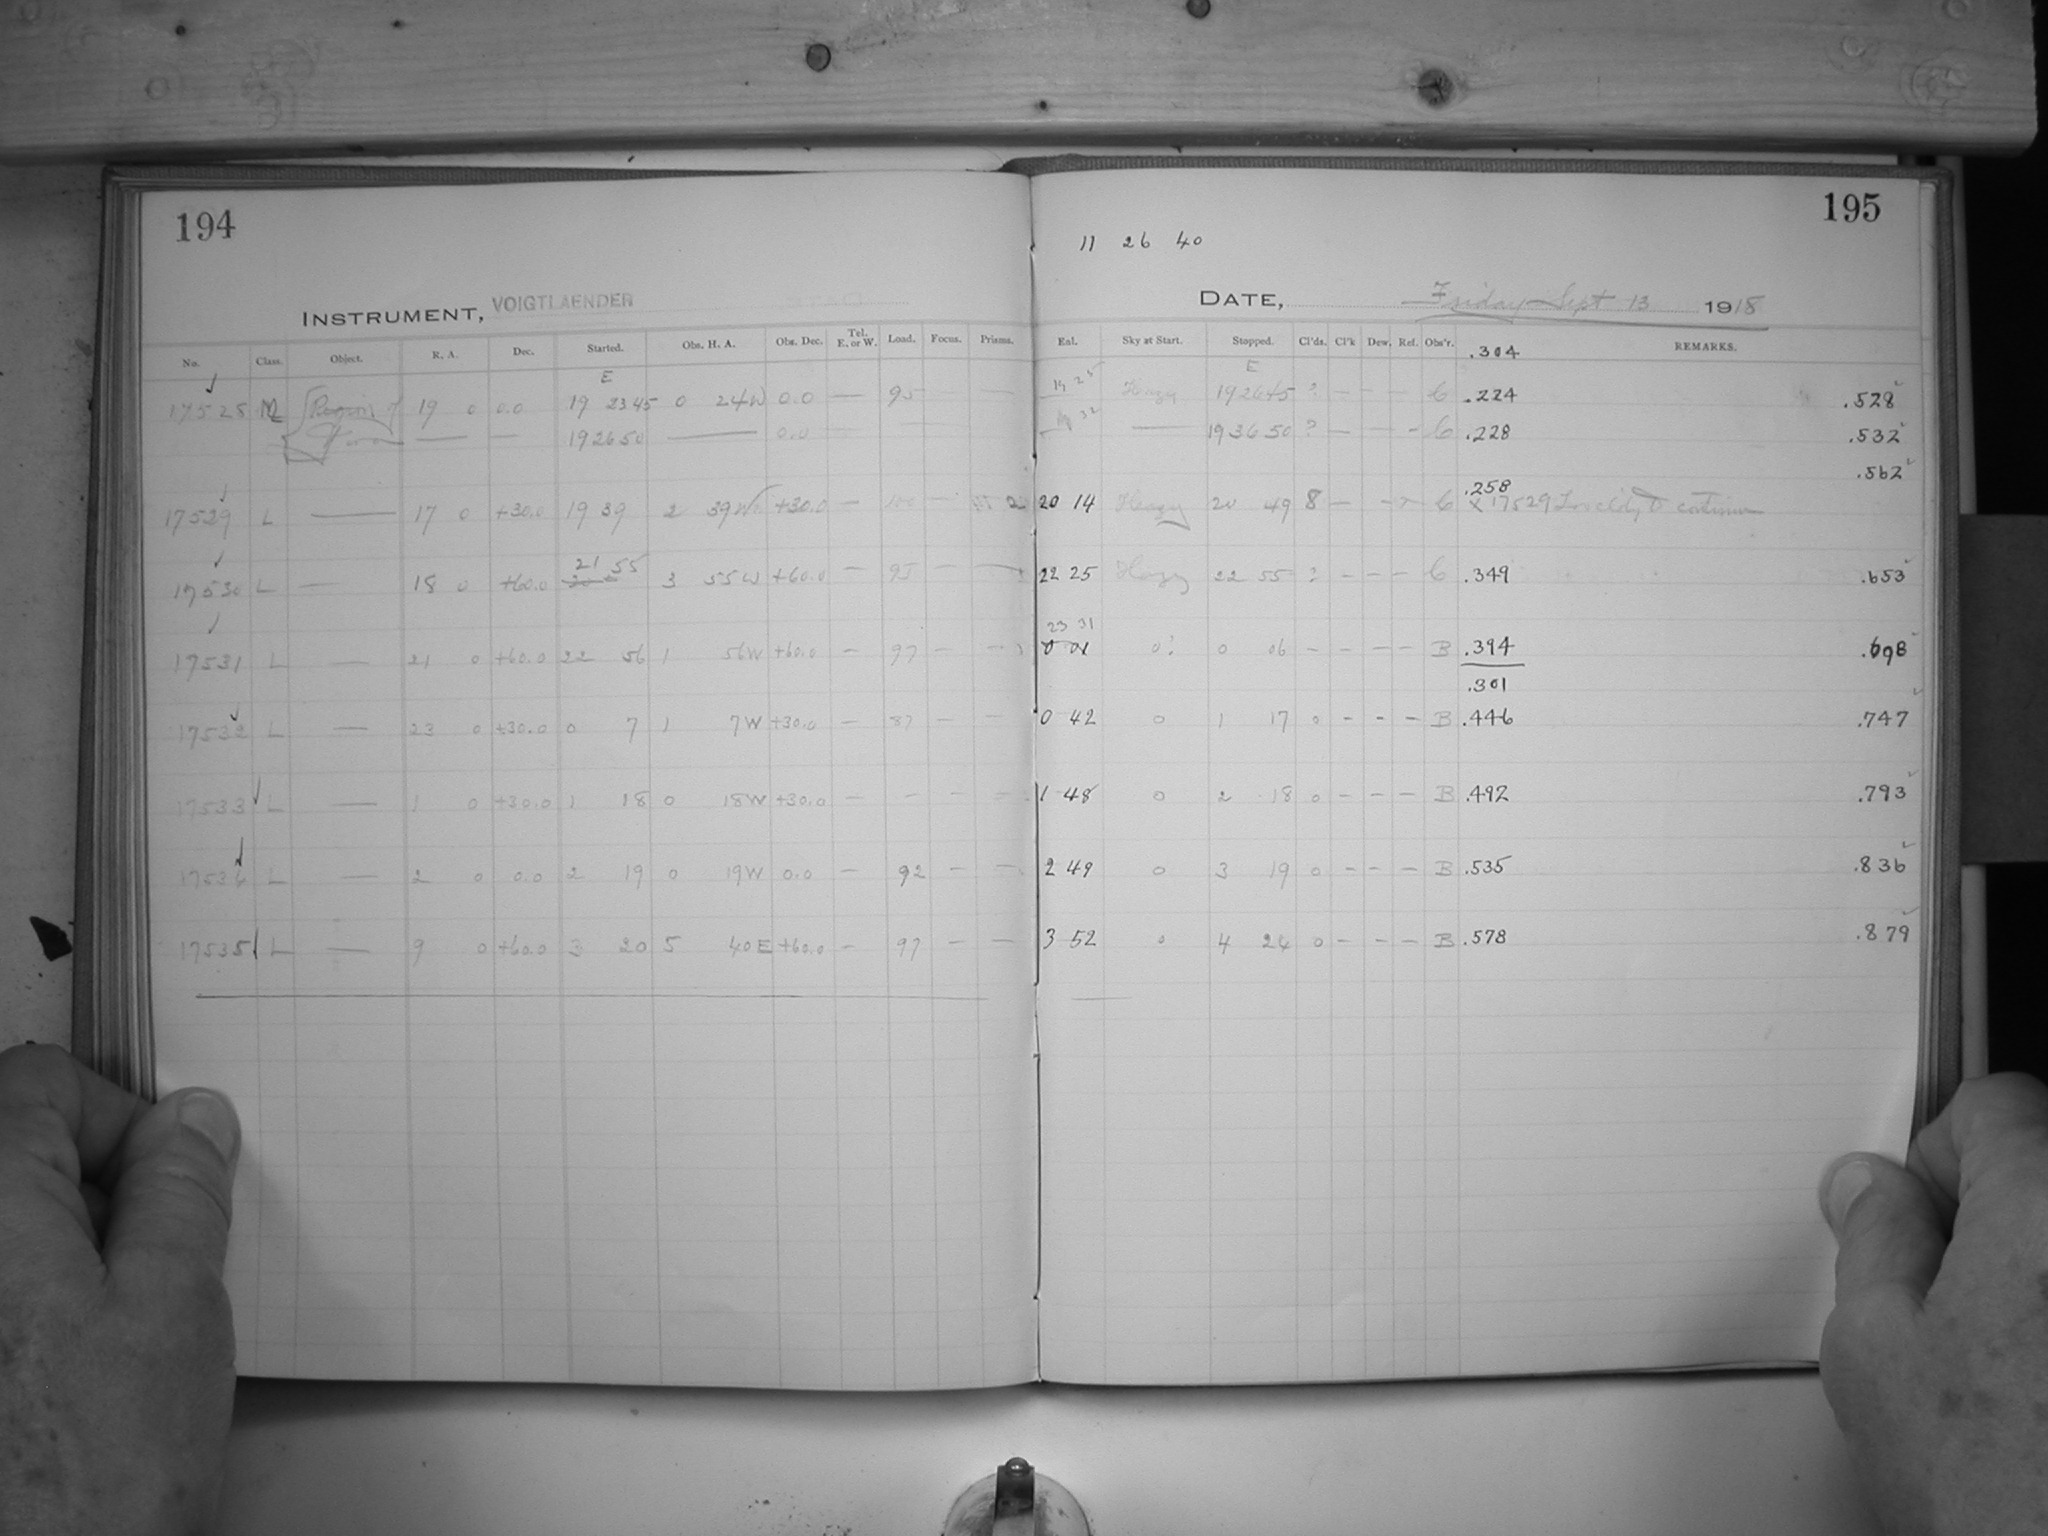 194
195
11 26 40
INSTRUMENT, VOIGTLAENDER
DATE, Friday Sept 13 1918
No. Class. Object. R. A. Dec. Started. Obs. H. A. Obs. Dec. Tel. E. or W. Load. Focus. Prisms. Eal. Sky at Start. Stopped. Cl'ds. Cl'k Dew. Ref. Obs'r. REMARKS.
.304
E E
17528 Region of 19 0 0.0 19 23 45 0 24W 0.0 — 95 — 19 25 Hazy 19 26 45 ? — — C .224 .528
— — 19 26 50 — 0.0 — 19 32 — 19 36 50 ? — — - C .228 .532
.258 .562
17529 L — 17 0 +30.0 19 39 2 39W +30.0 — 100 — 20 14 Hazy 20 49 8 — - C x 17529 Too cldy to continue
17530 L — 18 0 +60.0 21 55 3 55W +60.0 — 95 - — 22 25 Hazy 22 55 ? - - - C .349 .653
23 31
17531 L — 21 0 +60.0 22 56 1 56W +60.0 — 97 - — 0 01 0? 0 06 - - - - B .394 .698
.301
17532 L — 23 0 +30.0 0 7 1 7W +30.0 — 87 - — 0 42 0 1 17 0 - - - B .446 .747
17533 L — 1 0 +30.0 1 18 0 18W +30.0 — - - — 1 48 0 2 18 0 - - - B .492 .793
L — 2 0 0.0 2 19 0 19W 0.0 — 92 - — 2 49 0 3 19 0 - - - B .535 .836
17535 L — 9 0 +60.0 3 20 5 40E +60.0 - 97 - — 3 52 0 4 24 0 - - - B .578 .879